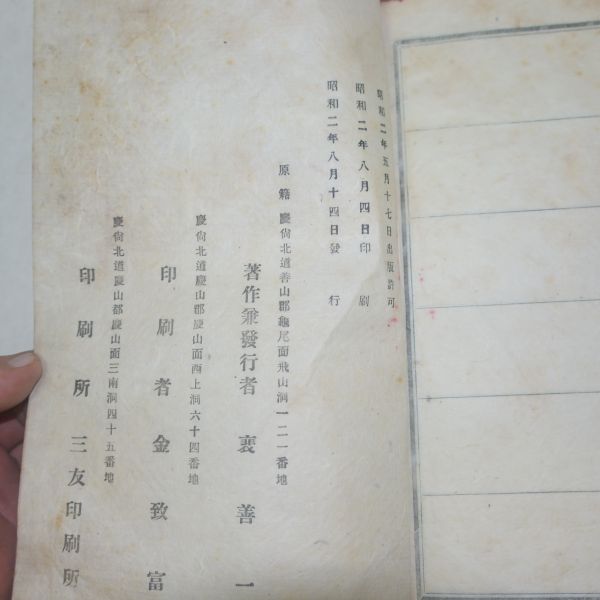 昭和二年五月十七日出版許可
昭和二年八月四日印刷
昭和二年八月十四日發行
原籍 慶尙北道善山郡龜尾面飛山洞一二一番地
著作兼發行者 裵善一
慶尙北道慶山郡慶山面西上洞六十四番地
印刷者 金致富
慶尙北道慶山郡慶山面三南洞四十五番地
印刷所 三友印刷所